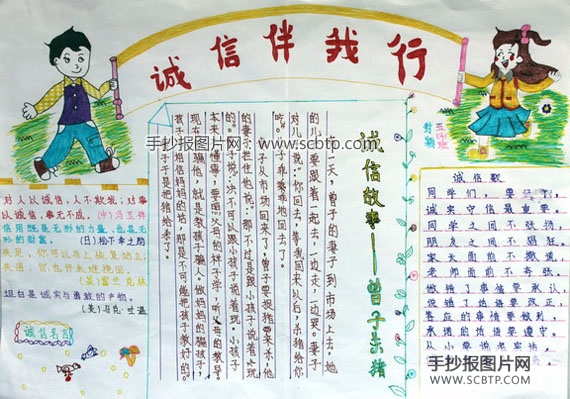 诚信伴我行
手抄报图片网 www.scbtp.com
对人以诚信,人不欺我;对事
以诚信,事无不成。(中)冯玉祥
信用既是无形的力量,也是无
形的财富。
(日)松下幸之助
失足,你可以马上恢复站立;
失信,你也许永难挽回。
(美)富兰克林
坦白是诚实与勇敢的产物。
(美)马克·吐温
诚信名言
诚信故事——曾子杀猪
有一天,曾子的妻子到市场上去,她
的儿子要跟着一起去,一边走,一边哭。妻子
对儿子说:“你回去,等我回来以后,杀猪给你
吃。”儿子乖乖地回去了。
妻子从市场回来了,曾子要捉猪来杀,他
的妻子拦住他说:“那不过是跟小孩子说着玩
的。”曾子说:“决不可以跟小孩子说着玩。小孩子
本来不懂事,要照父母的样子学,听父母的教导。
现在你骗他,就是教孩子骗人。做妈妈的骗孩子,
孩子不相信妈妈的话,那是不可能把孩子教好的。
于是把猪杀了。
诚信歌
同学们,要
诚实守信最重要。
同学之间不张扬,
朋友之间不隐瞒,
家长面前不撒谎,
老师面前不夸张。
做错了事情要承认,
说错了话语要改正,
答应的事情要做到,
承诺的话语要遵守
从小要说老实话,
手抄报图片网
WWW.SCBTP.COM